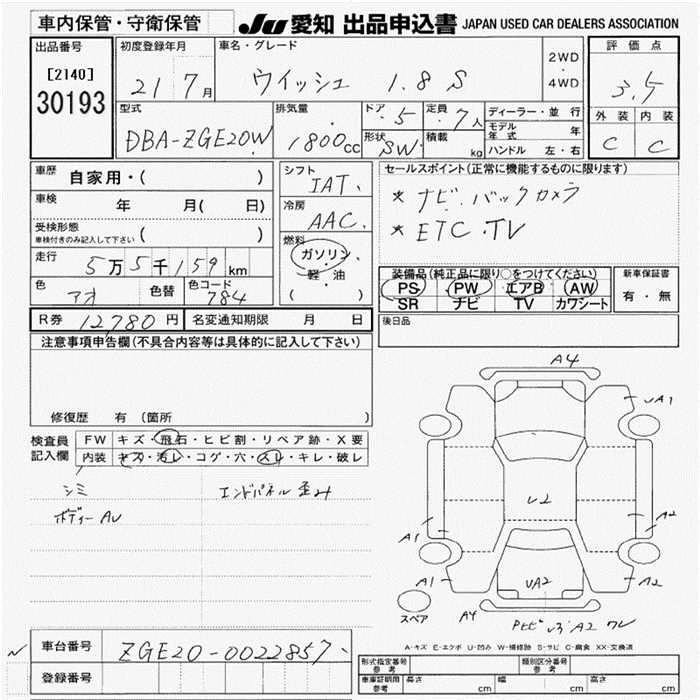 車内保管・守衛保管
JU 愛知 出品申込書 JAPAN USED CAR DEALERS ASSOCIATION
出品番号
[2140]
30193
初度登録年月
21 7月
車名・グレード
ウイッシュ 1.8 S
2WD
・
4WD
評価点
3.5
外装 内装
C C
型式
DBA-ZGE20W
排気量
1800cc
ドア・5
形状 SW
定員・7人
積載 kg
ディーラー・並行
モデル年式 年
ハンドル 左・右
車歴 自家用・( )
車検 年 月( 日)
受検形態
車検付きのみ記入して下さい ( )
走行
5万5千159km
色 アオ 色替 色コード 784
シフト
IAT
冷房
AAC
燃料
ガソリン
・
軽・油
( )
セールスポイント(正常に機能するものに限ります)
* ナビ・バックカメラ
* ETC・TV
装備品(純正品に限り○をつけてください)
PS PW エアB AW
SR ナビ TV カワシート
新車保証書
有・無
R券 12,780円 名変通知期限 月 日
後日品
注意事項申告欄(不具合内容等は具体的に記入して下さい)
修復歴 有 (箇所 )
検査員記入欄
FW キズ・飛石・ヒビ割・リペア跡・X要
内装 キズ・汚レ・コゲ・穴・スレ・キレ・破レ
シミ
ボディー AU
エンドパネル歪み
A4
UA1
U2
A1
A2
A1
A2
UA2
A4
スペア
A-キズ E-エクボ U-凹み W-補修跡 S-サビ C-腐食 XX-交換済
車台番号 ZGE20-0022857
登録番号
形式指定番号 参考
類別区分番号 参考
車庫証明用 参考 長さ cm 幅 cm 高さ cm